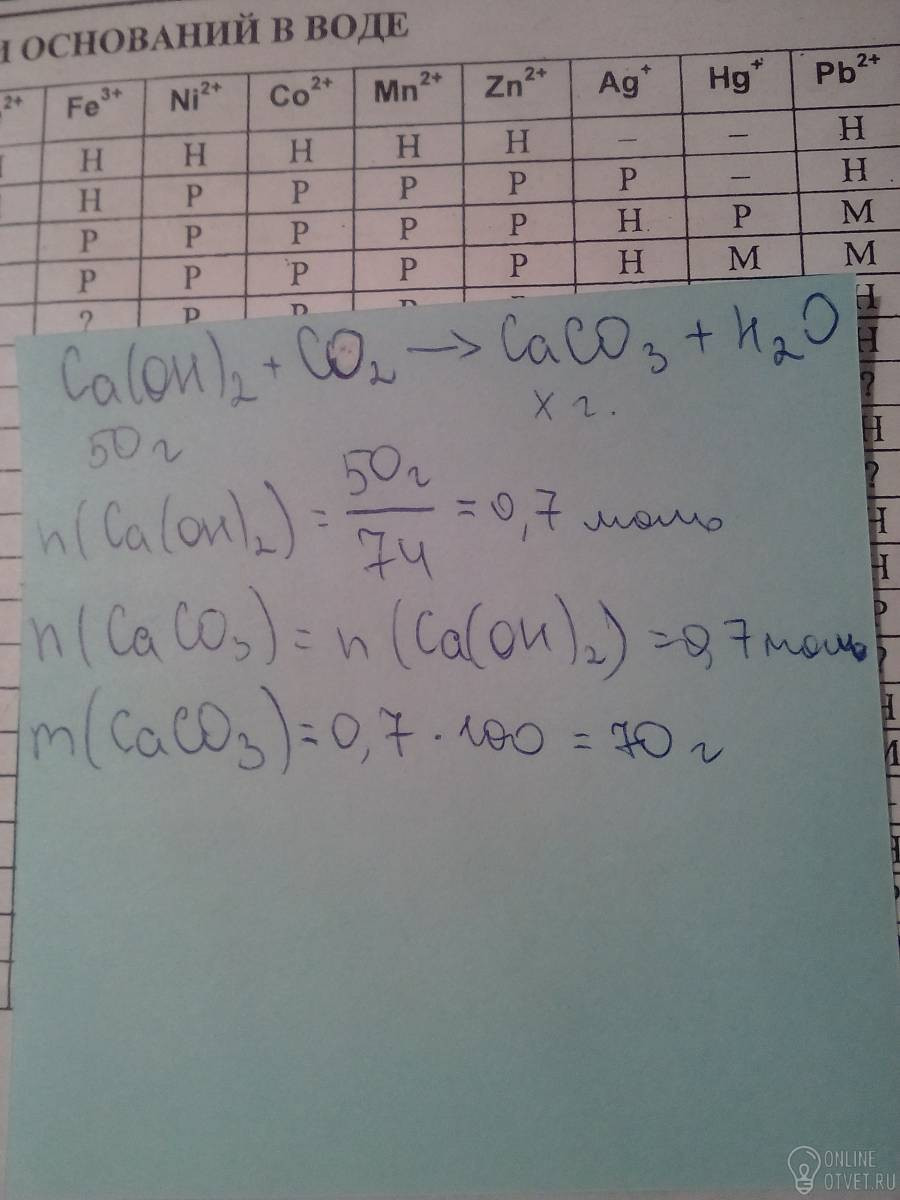 И ОСНОВАНИЙ В ВОДЕ
2+ Fe³⁺ Ni²⁺ Co²⁺ Mn²⁺ Zn²⁺ Ag⁺ Hg⁺ Pb²⁺
Н Н Н Н Н – – Н
Н Р Р Р Р Р – Н
Р Р Р Р Р Н Р М
Р Р Р Р Р Н М М
? Р Р Р Н
Ca(OH)₂ + CO₂ → CaCO₃ + H₂O
50 г х г.
n(Ca(OH)₂) = 50 г / 74 = 0,7 моль
n(CaCO₃) = n(Ca(OH)₂) = 0,7 моль
m(CaCO₃) = 0,7 · 100 = 70 г
Н
?
Н
?
Н
Н
?
Н
ONLINE
OTVET.RU